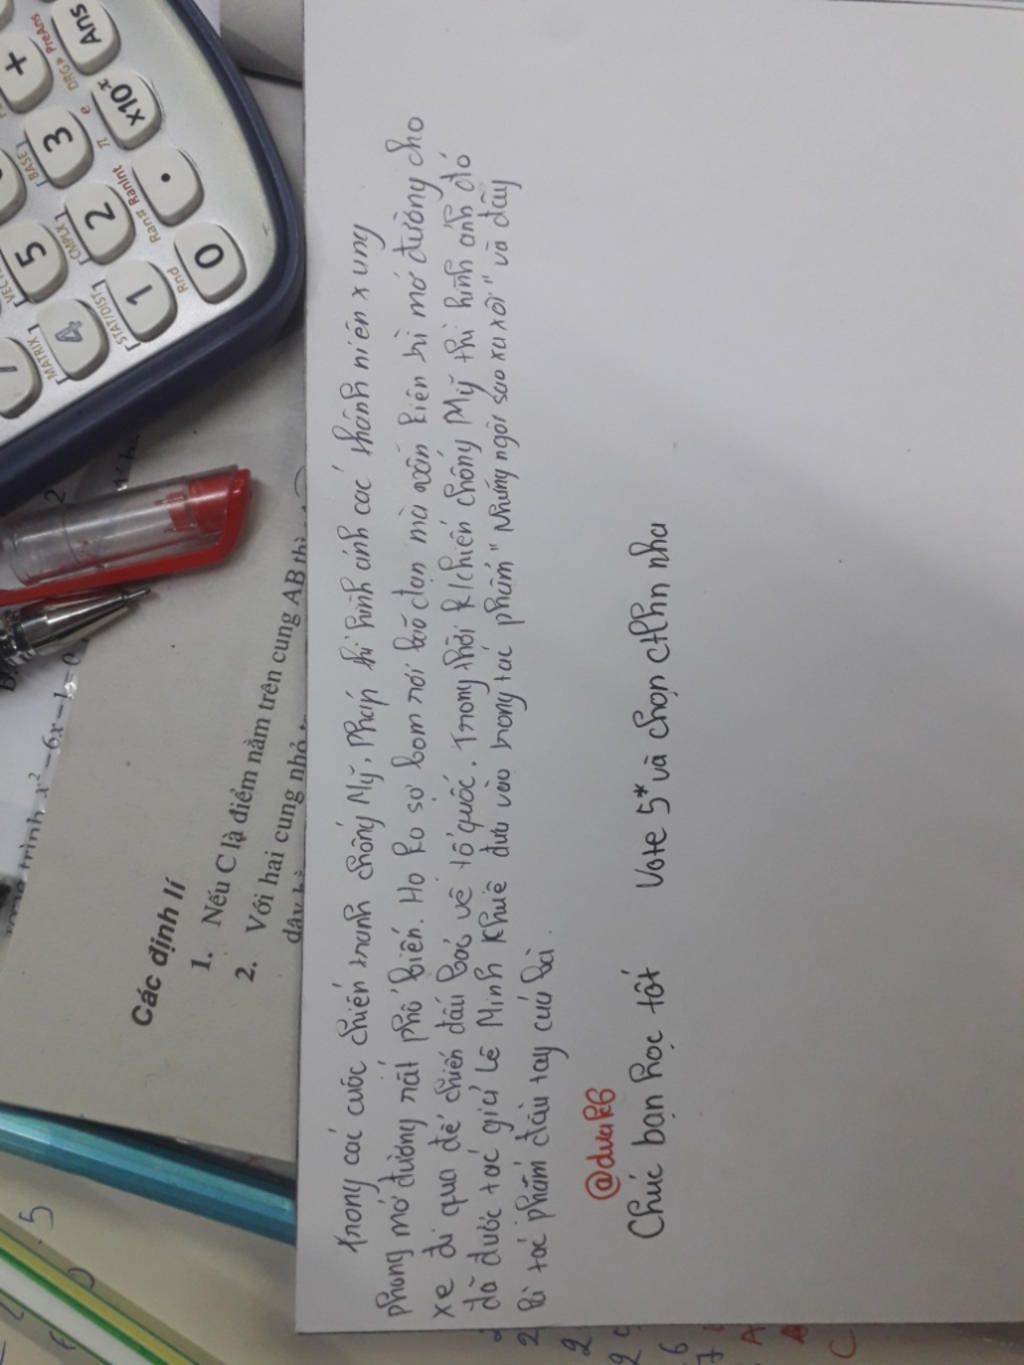 Trong các cuộc chiến tranh chống Mỹ, Pháp thì hình ảnh các thanh niên xung
phong mở đường rất phổ biến. Họ ko sợ bom rơi bão đạn mà vẫn kiên trì mở đường cho
xe đi qua để chiến đấu bảo vệ tổ quốc. Trong thời k/chiến chống Mỹ thì hình ảnh đó
đã được tác giả Lê Minh Khuê đưa vào trong tác phẩm "Những ngôi sao xa xôi" và đây
là tác phẩm đầu tay của bà.
@duak6
Chúc bạn học tốt Vote 5* và chọn ctlhn nha
Các định lí
1. Nếu C là điểm nằm trên cung AB thì
2. Với hai cung nhỏ
x² - 6x - 1 = 0
Ans
+
PreAns
DRG▸
x10ˣ
3
π
e
[BASE]
.
2
Ran#
RanInt
[CMPLX]
5
0
1
Rnd
[STAT/DIST]
4
[MATRIX]